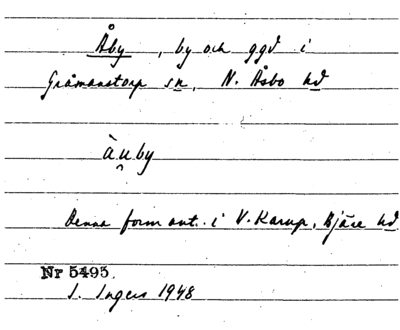 Åby, by och ggd i
Gråmanstorp sn, N. Åsbo hd
àu̯by
Denna form ant. i V. Karup, Bjäre hd
Nr 5495.
I. Ingers 1948